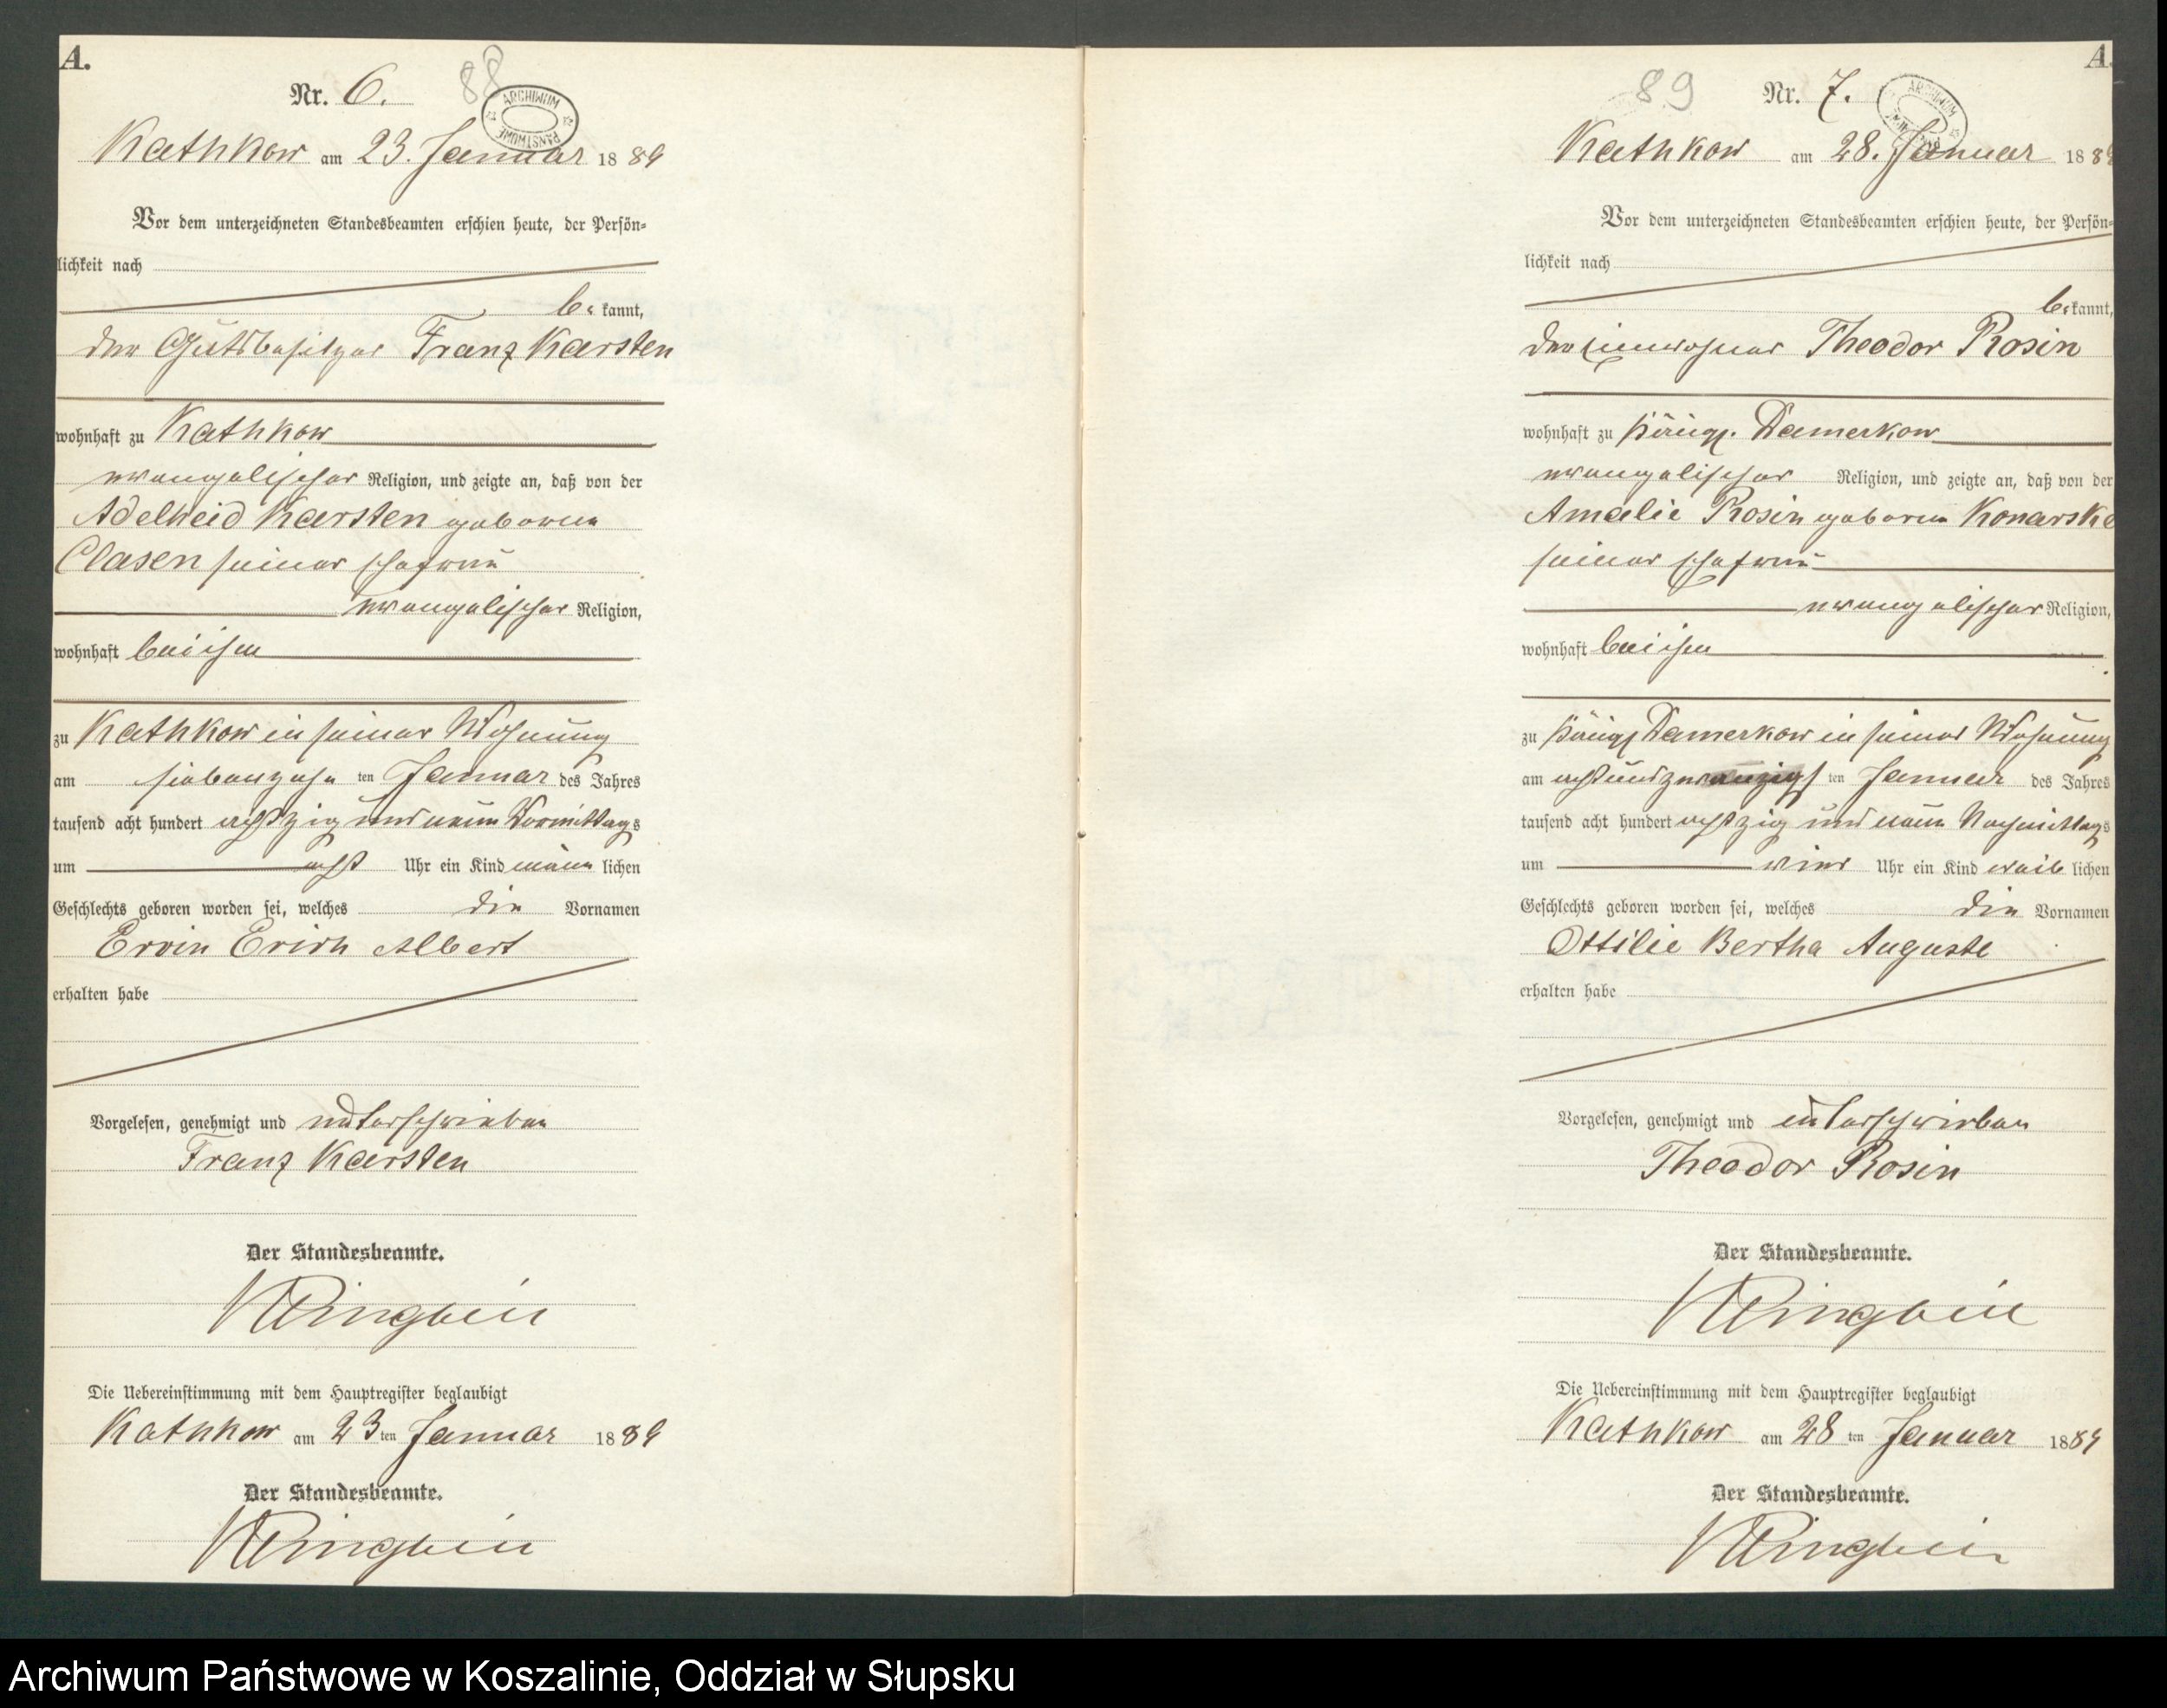 A.
Nr. 6.
88
ARCHIWUM PAŃSTWOWE
Kathkow am 23. Januar 1889
Vor dem unterzeichneten Standesbeamten erschien heute, der Persön-
lichkeit nach
be kannt,
der Gutsbesitzer Franz Karsten
wohnhaft zu Kathkow
evangelischer Religion, und zeigte an, daß von der
Adelheid Karsten geborene
Clasen seiner Ehefrau
evangelischer Religion,
wohnhaft bei ihm
zu Kathkow in seiner Wohnung
am siebenzehn ten Januar des Jahres
tausend acht hundert achtzig und neun Vormittags
um acht Uhr ein Kind männ lichen
Geschlechts geboren worden sei, welches die Vornamen
Ervin Erich Albert
erhalten habe
Vorgelesen, genehmigt und unterschrieben
Franz Karsten
Der Standesbeamte.
Die Uebereinstimmung mit dem Hauptregister beglaubigt
Kathkow am 23 ten Januar 1889
Der Standesbeamte.
A.
89
Nr. 7.
ARCHIWUM
Kathkow am 28. Januar 188
Vor dem unterzeichneten Standesbeamten erschien heute, der Persön-
lichkeit nach
be kannt,
der Einwohner Theodor Rosin
wohnhaft zu Königl. Damerkow
evangelischer Religion, und zeigte an, daß von der
Amalie Rosin geborene Konarske
seiner Ehefrau
evangelischer Religion,
wohnhaft bei ihm
zu Königl Damerkow in seiner Wohnung
am achtundzwanzigs ten Januar des Jahres
tausend acht hundert achtzig und neun Nachmittags
um vier Uhr ein Kind weib lichen
Geschlechts geboren worden sei, welches die Vornamen
Ottilie Bertha Auguste
erhalten habe
Vorgelesen, genehmigt und unterschrieben
Theodor Rosin
Der Standesbeamte.
Die Uebereinstimmung mit dem Hauptregister beglaubigt
Kathkow am 28 ten Januar 1889
Der Standesbeamte.
Archiwum Państwowe w Koszalinie, Oddział w Słupsku